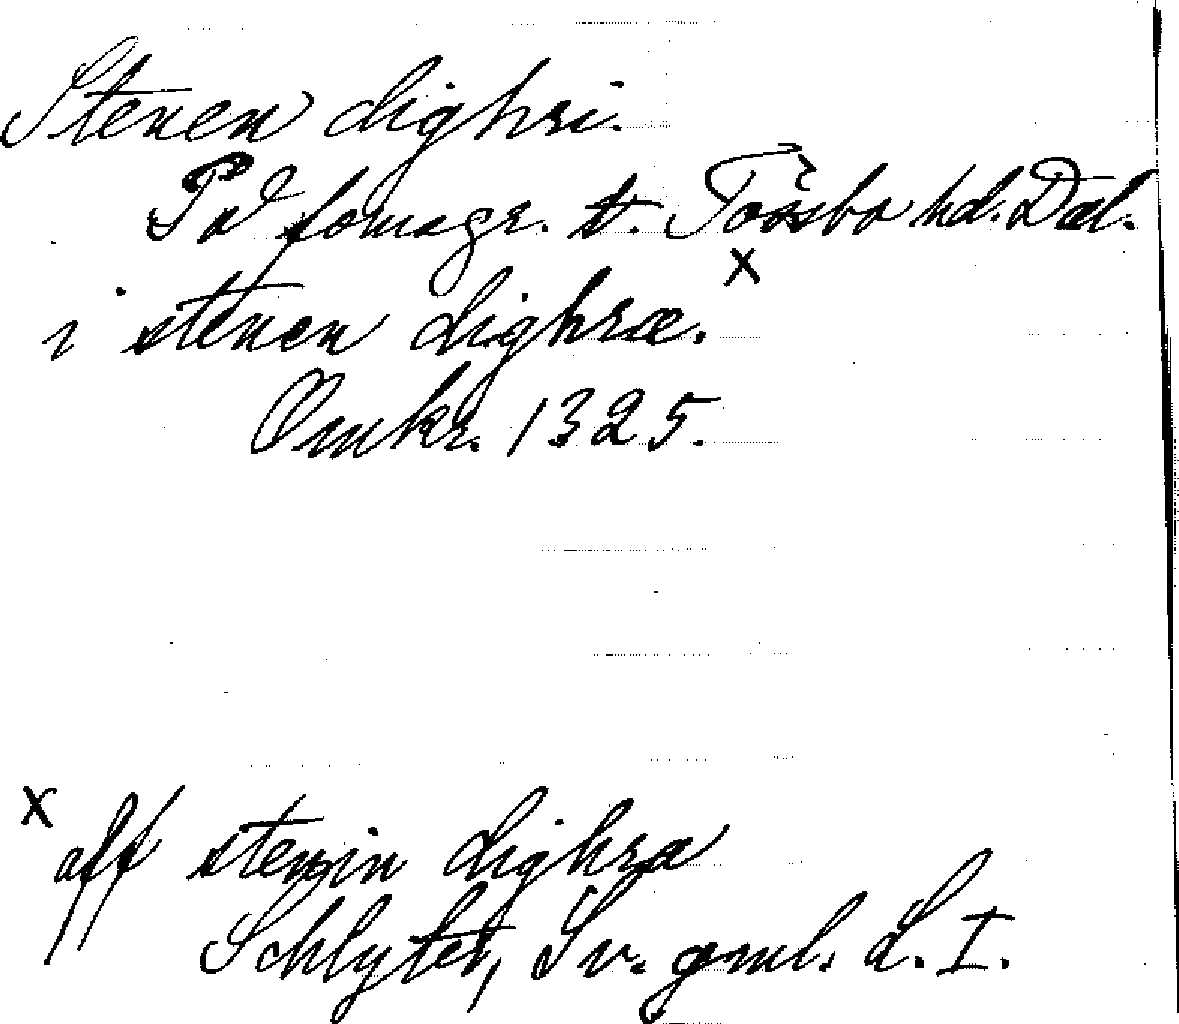 Stenen dighri.
På fornegr. t. Tössbo hd. Dal.
x
i stenen dighræ.
Omkr. 1325.
x aff stenin dighra
Schlyter, Sv. gml. L. I.